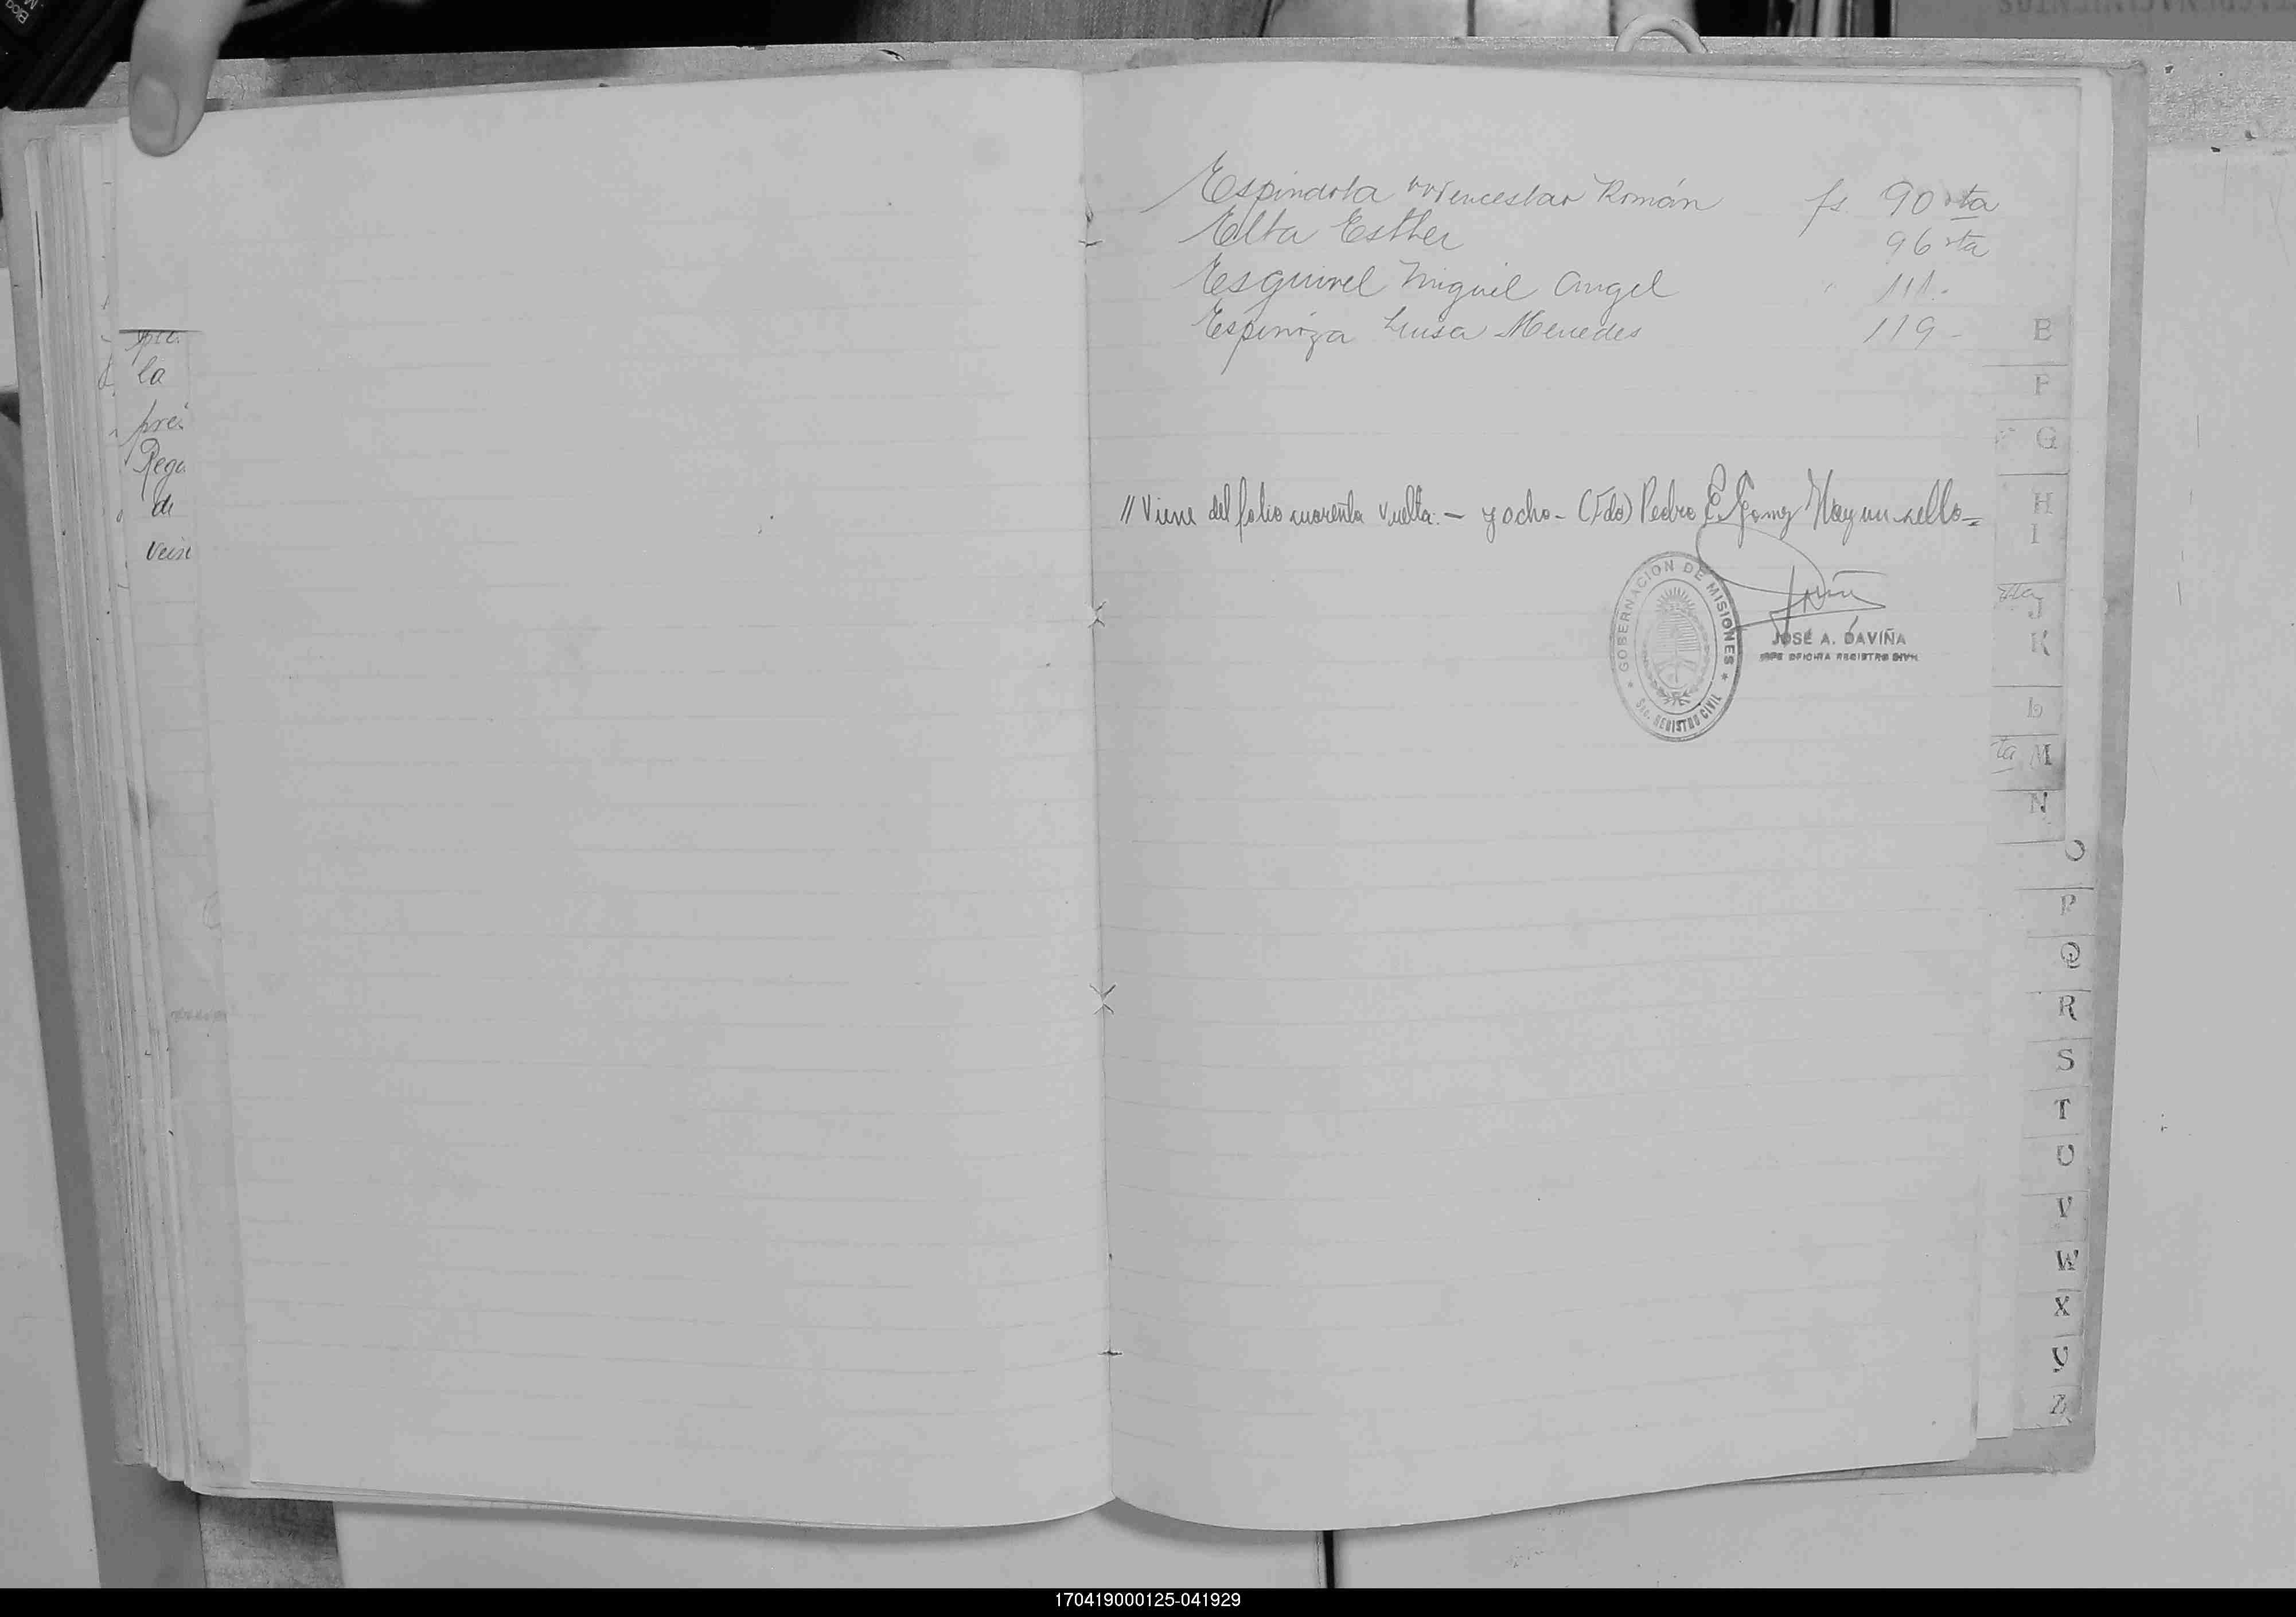 Espindola Wenceslao Román fs 90 vta
Elba Esther 96 vta
Esquivel Miguel Angel " 111.-
Espinoza Luisa Mercedes 119-
la
prei
Rega
de
// Viene del folio cuarenta vuelta.- y ocho- (Fdo) Pedro E. Gomez Hay un sello-
GOBERNACION DE MISIONES
Sec. REGISTRO CIVIL
JOSÉ A. DAVIÑA
JEFE OFICINA REGISTRO CIVIL
E
F
G
H
I
vta
J
K
L
ta M
N
O
P
Q
R
S
T
U
V
W
X
Y
Z
170419000125-041929